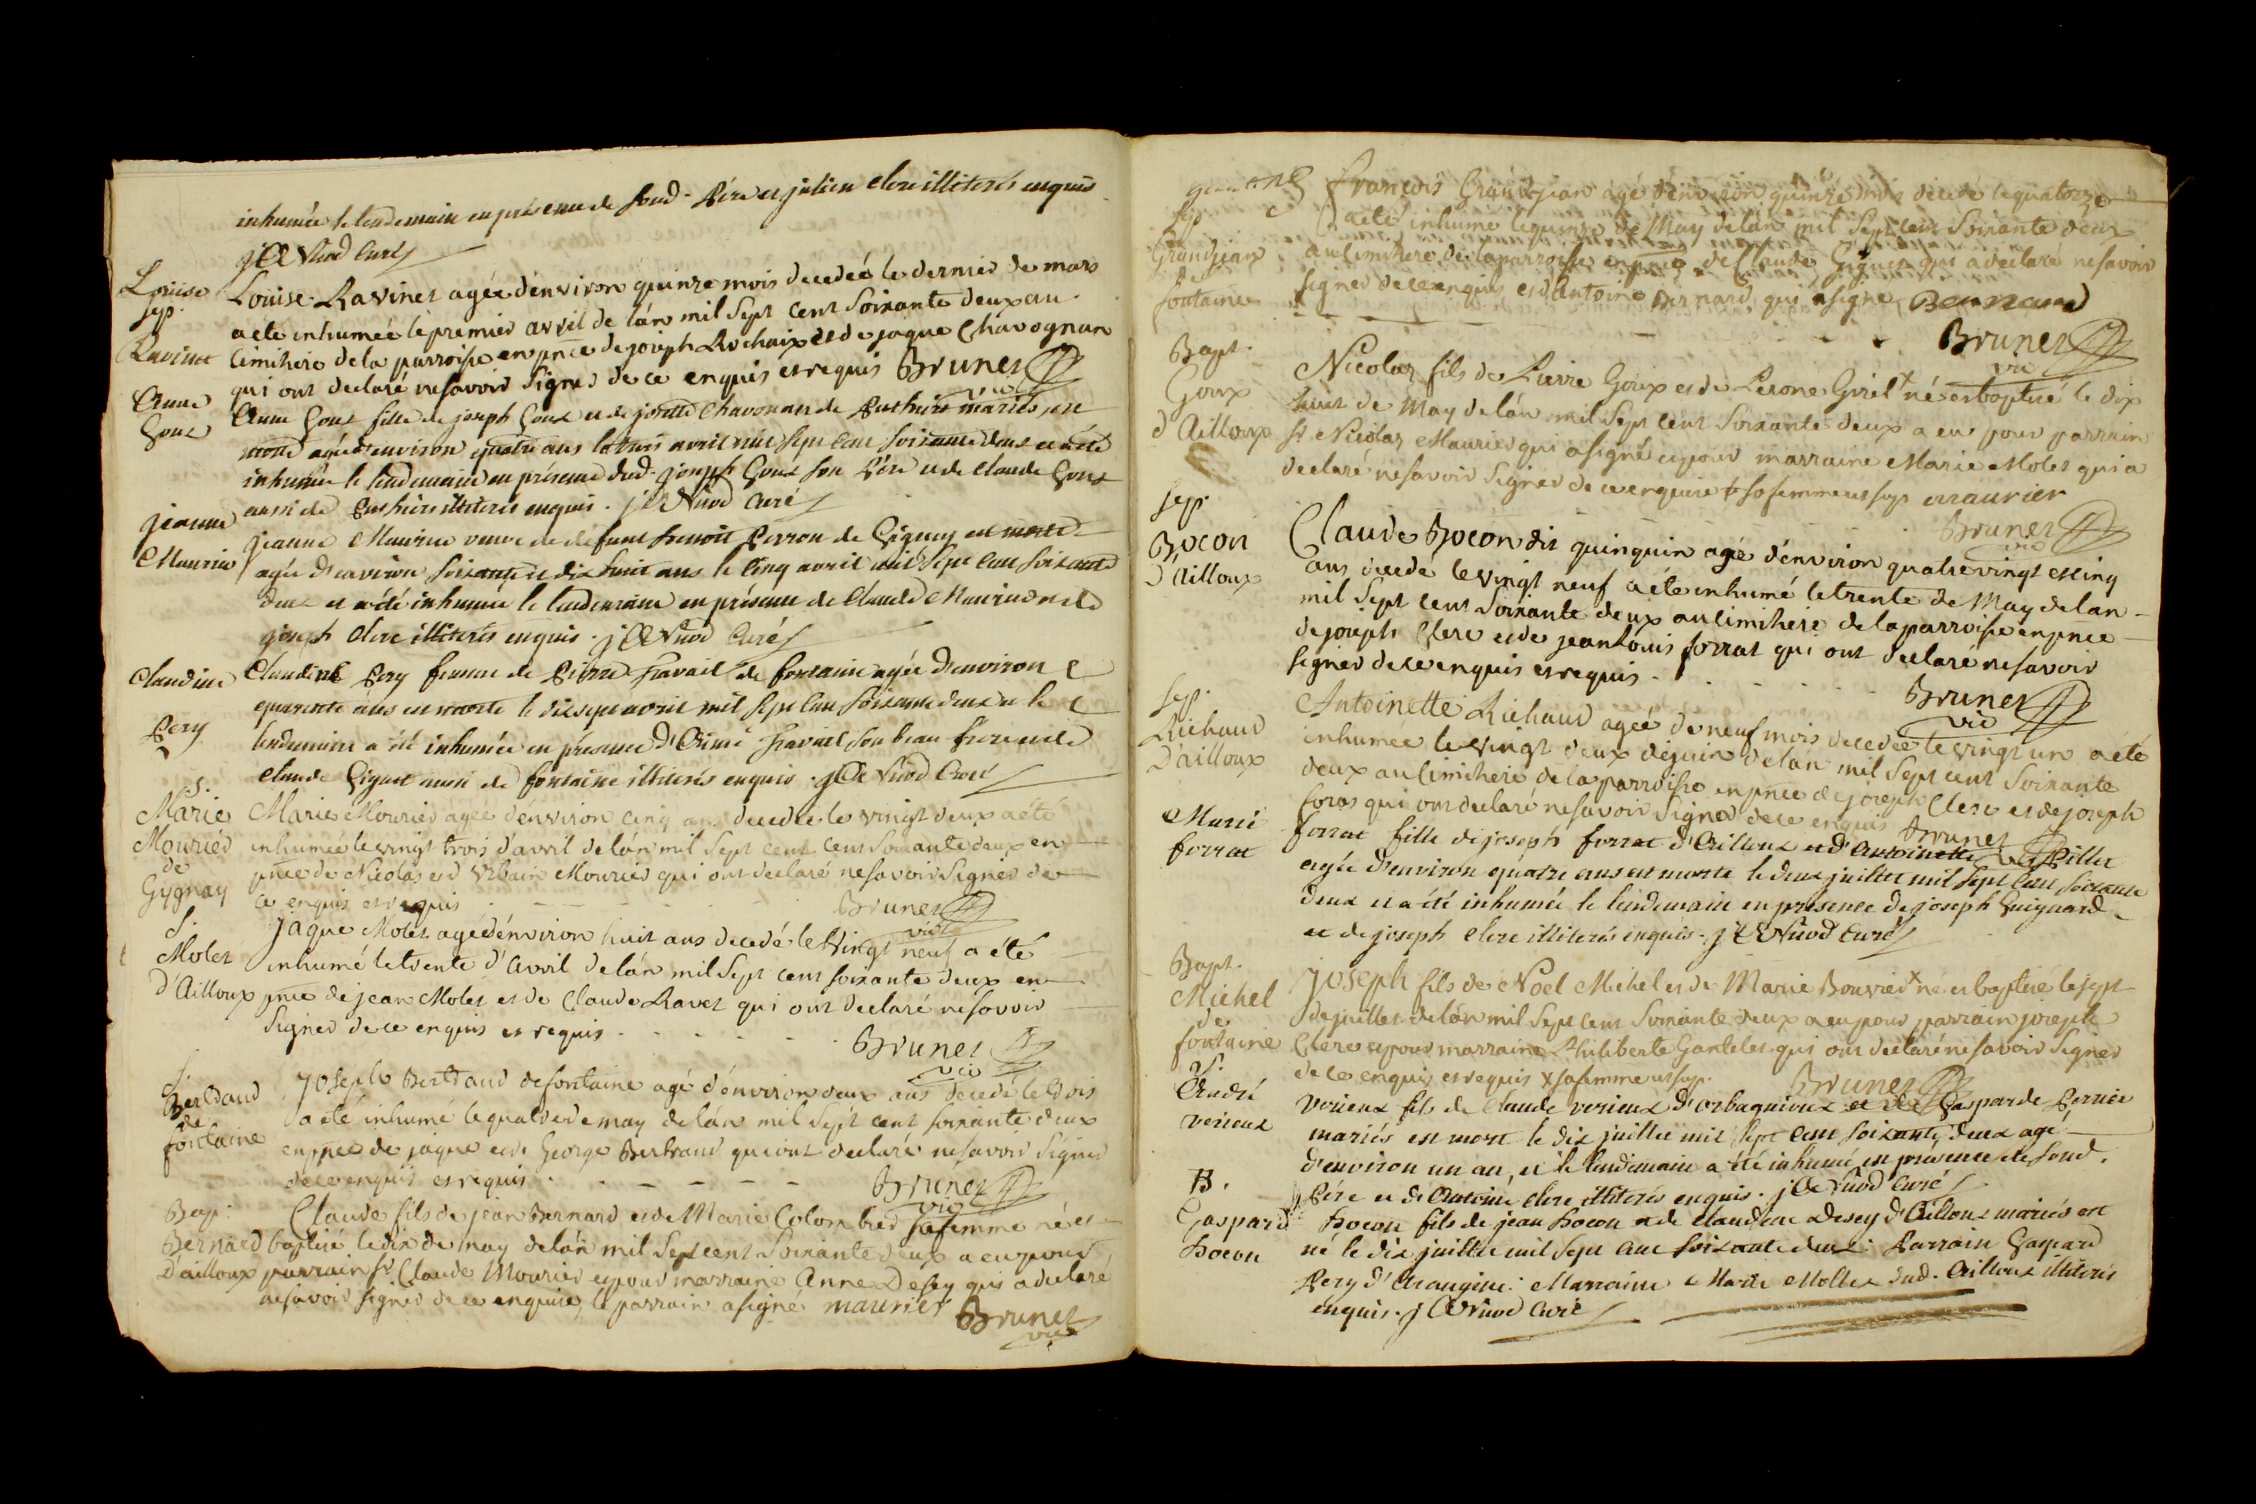 inhumée le lendemain en présence de sond. Père et julien clerc illiterés enquis
Curé
Louise
sep.
Ravinet
Louise Ravinet agée d'environ quinze mois decedeé le dernier de mars
a eté inhumeé le premier avril de lán mil sept cent soixante deux au
cimitiere de la parroisse en pnce de joseph Rochaix et de jaque Chavognan
qui ont declaré ne savoir signer de ce enquis et requis Brunet
vic
Anne
Goux
Anne Goux fille de joseph Goux et de josette Chavonan de mariés est
morte agée d'environ quatre ans le trois avril mil sept cent soixante deux et a été
inhumée le lendemain en présence dud. joseph Goux son Père et de Claude Goux
aussi de illiterés enquis. Curé
jeanne
Maurier
jeanne Maurier veuve de défunt benoit Perron de Gigney est morte
agée d'environ soixante et dix huit ans le cinq avril mil sept cent soixante
deux et a été inhumée le lendemain en présence de Claude Maurier et de
joseph clerc illiterés enquis. Curé
Claudine
Pery
Claudine Pery femme de Pierre Travail de fontaine agée d'environ
quarante ans est morte le dix sept avril mil sept cent soixante deux et le
lendemain a été inhumée en présence d'Aimé Travail son beau frere et de
Claude Giguet aussi de fontaine illiterés enquis. Curé
S.
Marie
Mouried
de
Gygnay
Marie Mouried agée d'environ cinq ans decedée le vingt deux a été
inhumeé le vingt trois d'avril de lán mil sept cent cent soixante deux en
pnce de Nicolas et d'Urbain Mouried qui ont declaré ne savoir signer de
ce enquis et requis Brunet
vic
S.
Molet
d'Ailloux
jaque Molet agé d'environ huit ans decedé le vingt neuf a été
inhumé le trente d'avril de lán mil sept cent soixante deux en
pnce de jean Molet et de Claude Ravet qui ont declaré ne savoir
signer de ce enquis et requis
Brunet
vic
S.
Bertraud
de
fontaine
joseph Bertraud de fontaine agé d'environ deux ans decedé le trois
a été inhumé le quatre de may de lán mil sept cent soixante deux
en pnce de jaque et de George Bertraud qui ont declaré ne savoir signer
de ce enquis et requis
Brunet
vic
Bap.
Bernard
d'ailloux
Claude fils de jean Bernard et de Marie Colombed sa femme né et
baptisé le dix de may de lán mil sept cent soixante deux a eu pour
parrain sr Claude Mouried et pour marraine Anne Desey qui a declaré
ne savoir signer de ce enquise, le parrain a signé maurier Brunet
vic
sep
Grandjean
de
fontaine
François Grandjean agé d'environ quinze mois decedé le quatorze
a eté inhumé le quinze de May de lán mil sept cent soixante deux
au cimitiere de la parroisse en pnce de Claude Giguet qui a declaré ne savoir
signer de ce enquis et d'Antoine Bernard qui a signé Bernard
Brunet
vic
Bapt.
Goux
d'Ailloux
Nicolas fils de Pierre Goux et de Perone Girel x né et baptisé le dix
huit de May de lán mil sept cent soixante deux a eu pour parrain
sr Nicolas Mauried qui a signé et pour marraine Marie Molet qui a
declaré ne savoir signer de ce enquise x sa femme ut sup. maurier
Brunet
vic
sep.
Bocon
d'Ailloux
Claude Bocon dit quinquin agé d'environ quatre vingt et cinq
ans decedé le vingt neuf a eté inhumé le trente de May de lan
mil sept cent soixante deux au cimitiere de la parroisse en pnce
de joseph Clerc et de jean Louis forrat qui ont declaré ne savoir
signer de ce enquis et requis.
Brunet
vic
sep.
Richaud
D'ailloux
Antoinette Richaud ageé de neuf mois decedeé le vingt un a eté
inhumée le vingt deux de juin de lán mil sept cent soixante
deux au cimitiere de la parroisse en pnce de joseph Clerc et de joseph
foras qui ont declaré ne savoir signer de ce enquis Brunet
Marie
forrat
forrat fille de joseph forrat d'Ailloux et d'Antoinette Pillet
agée d'environ quatre ans est morte le deux juillet mil sept cent soixante
deux et a été inhumée le lendemain en présence de joseph Guignard
et de joseph clerc illiterés enquis. Curé
Bapt.
Michel
de
fontaine
joseph fils de Noel Michel et de Marie Bouvied x né et baptisé le sept
de juillet de lán mil sept cent soixante deux a eu pour parrain joseph
Clerc et pour marraine Philiberte Gantelet qui ont declaré ne savoir signer
de ce enquis et requis x sa femme ut sup. Brunet
S.
André
verieux
verieux fils de Claude verieux d'orbagnieux et de Gasparde Pernier
mariés est mort le dix juillet mil sept cent soixante deux agé
d'environ un an, et le lendemain a été inhumé en présence de sond.
Père et d'Antoine clerc illiterés enquis. Curé
B.
Gaspard
bocon
bocon fils de jean bocon et de claudine Desey d'Ailloux mariés est
né le dix juillet mil sept cent soixante deux. Parrain Gaspard
Pery d' Marraine Marie Mollet dud. Ailloux illiterés
enquis. Curé